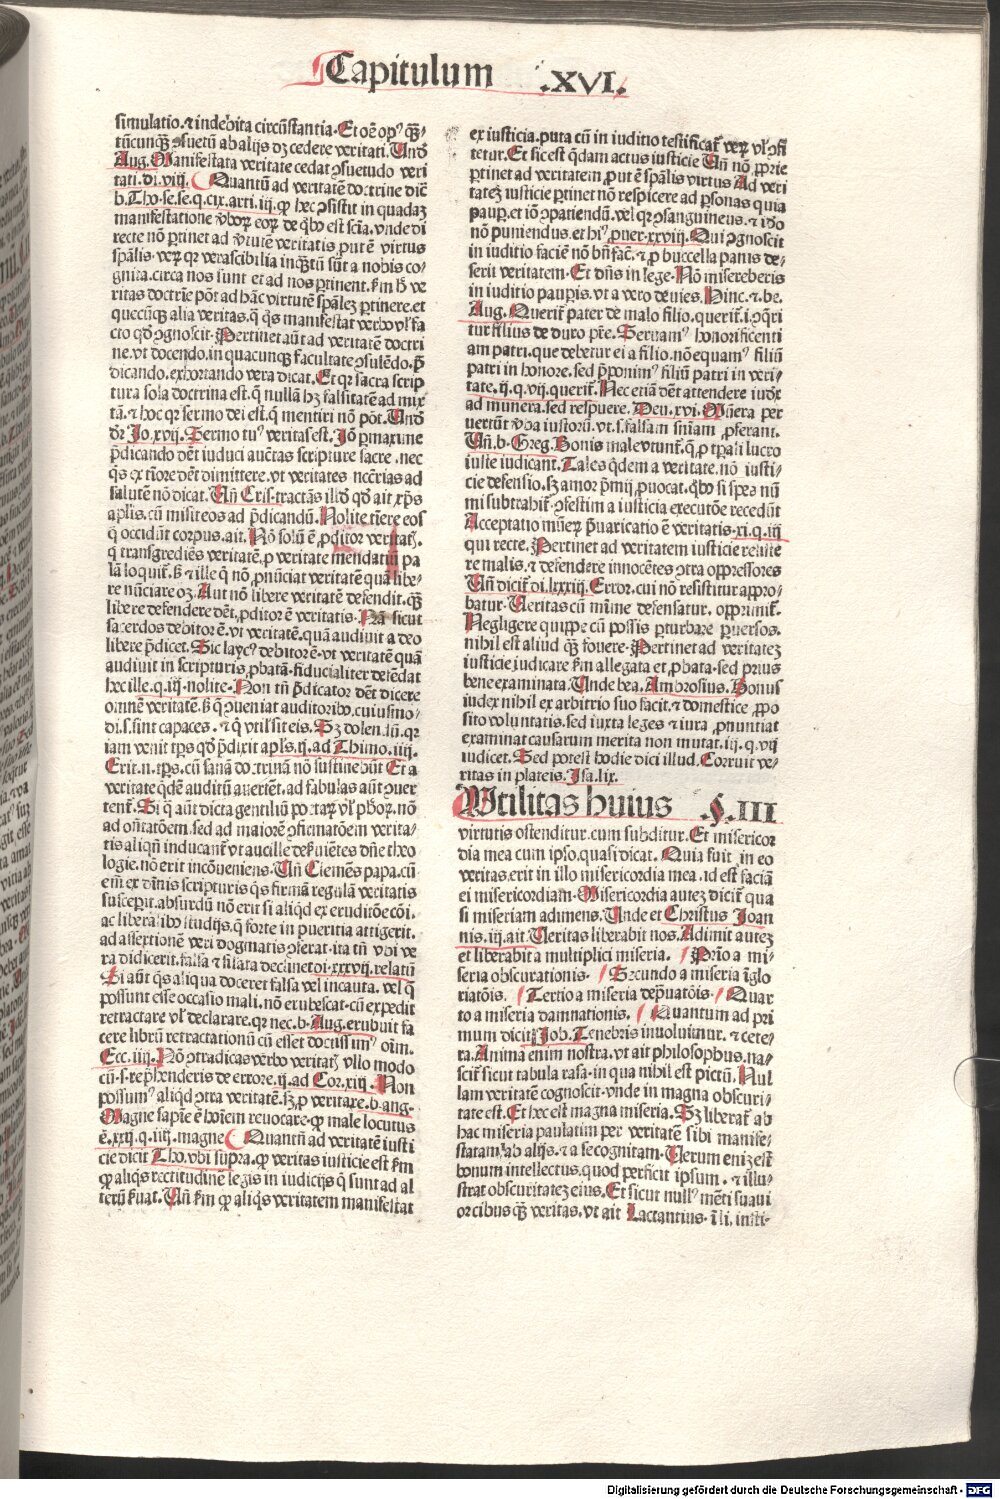 Capitulum .XVI.
simulatio. ⁊ indebita circũstantia. Et oẽ opꝰ qͣ̃-
tũcunqꝫ ꝯsuetũ ab alijs dꝫ cedere veritati. Vnð
Aug. Manifestata veritate cedat ꝯsuetudo veri
tati. di. viij. Quantũ ad veritatẽ doctrine dicit
b. Tho. se. se. q. cix. arti. iij. ꝙ hec ꝯsistit in quadaꝫ
manifestatione vꝺoꝝ eoꝝ de qͥbꝰ est scĩa. vnde di
recte nõ ꝑtinet ad ꝟtutẽ veritatis put ẽ virtus
spãlis. veꝝ qꝛ verascibilia inqͣ̃tũ sũt a nobis co-
gnita. circa nos sunt et ad nos ꝑtinent. ẜm ꝟ ve
ritas doctrĩe põt ad hãc virtutẽ spãleꝫ ꝑtinere. et
quecũqꝫ alia veritas. q̃ qͥs manifestat verbo vꝉ fa
cto qð ꝯgnoscit. Pertinet aũt ad veritatẽ doctri
ne. vt docendo. in quacunqꝫ facultate ꝯsulẽdo. p̃
dicando. exhortando vera dicat. Et qꝛ sacra scrip
tura sola doctrina est. q̃ nullã hꝫ falsitatẽ ad mix
tã. ⁊ hoc qꝛ sermo dei est. q̃ mentiri nõ põt. Vnð
ðꝛ Jo. xvij. Sermo tuꝰ veritas est. Jõ ꝑmaxime
p̃dicando dẽt induci auctãs scripture sacre. nec
qͥs ex tĩore dẽt dimittere. vt veritates ncc̃rias ad
salutẽ nõ dicat. Vñ Cris. tractãs illð qð ait xp̃s
aplis. cũ misit eos ad p̃dicandũ. Nolite tĩere eos
q̃ occidũt corpus. ait. Nõ solũ ẽ ꝓditor veritatꝭ.
q̃ transgrediẽs veritatẽ. ꝓ veritate mendatiũ pa
lã loquit̃. ꝟ ⁊ ille q̃ nõ ꝓnũciat veritatẽ quã libe-
re nũciare oꝫ. Aut nõ libere veritatẽ defendit. qͣ̃
libere defendere dẽt. ꝓditor ẽ veritatis. Nã sicut
sacerdos debitor ẽ. vt veritatẽ. quã audiuit a deo
libere p̃dicet. Sic laycꝰ debitor ẽ. vt veritatẽ quã
audiuit in scripturis ꝓbatã. fiducialiter defẽdat
hec ille. q. iij. nolite. Non tñ p̃dicator dẽt dicere
omnẽ veritatẽ. ꝟ q̃ ꝯueniat auditoribꝰ. cuiusmo-
di. s. sint capaces. ⁊ q̃ vtil' sit eis. Sꝫ dolendũ. qꝛ
iam venit tp̃s qð p̃dixit apls. ij. ad Thimo. iiij.
Erit. n. tp̃s. cũ sanã doctrinã nõ sustinebũt Et a
veritate qͥdẽ auditũ auertẽt. ad fabulas aũt ꝯuer
tent̃. Si q̃ aũt dicta gentiliũ poetaꝝ vꝉ phoꝝ. nõ
ad oñtatõem. sed ad maiorẽ ꝯfirmatõem verita-
tis aliqñ inducant̃ vt ancille deẜuiẽtes dñe theo
logie. nõ erit incõueniens. Vñ Clemẽs papa. cũ
em̃ ex diuinis scripturis qͥs firmã regulã veritatis
susceperit. absurdũ nõ erit si aliqͥd ex eruditõe cõi.
ac liberalibꝰ studijs. q̃ forte in pueritia attigerit.
ad assertionẽ veri dogmatis ꝯferat. ita tñ vbi ve
ra didicerit. falsa ⁊ silata declinet di. xxxvij. relatũ
Si aũt qͥs aliqua doceret falsa vel incauta. vel q̃
possunt esse occasio mali. nõ erubescat. cũ expedit
retractare vꝉ declarare. qꝛ nec. b. Aug. erubuit fa
cere librũ retractationũ cũ esset doctissimꝰ oĩm.
Ecc. iiij. Nõ ꝯtradicas verbo veritatꝭ vllo modo
cũ. s. rep̃hẽnderis de errore. ij. ad Cor. xiij. Non
possumꝰ aliqͥd ꝯtra veritatẽ. sꝫ ꝓ veritate. b. aug.
Magne sapĩe ẽ hoĩem reuocare. ꝙ male locutus
ẽ. xxij. q. iiij. magne Quantũ ad veritatẽ iusti
cie dicit Tho. vbi supra. ꝙ veritas iusticie est ẜm
ꝙ aliqͥs rectitudinẽ legis in iudicijs q̃ sunt ad al
terũ ẜuat. Vñ ẜm ꝙ aliqͥs veritatem manifestat
ex iusticia. puta cũ in iuditio testificat̃ veꝝ vꝉ ꝯfi
tetur. Et sic est qͥdam actus iusticie Vñ nõ ꝓprie
ꝑtinet ad veritatem ꝓut ẽ spãlis virtus Ad veri
tateꝫ iusticie ꝑtinet nõ respicere ad ꝑsonas quia
pauꝑ. et iõ ꝯpatiendũ. vel qꝛ ꝯsanguineus. ⁊ iðo
nõ puniendus. et hiꝰ. puer. xxviij. Qui ꝯgnoscit
in iuditio faciẽ nõ bñ facit. ⁊ ꝓ buccella panis de-
serit veritatem. Et dñs in lege. Nõ misereberis
in iuditio pauꝑis. vt a vero deuies. Hinc. ⁊. be.
Aug. Querit̃ pater de malo filio. querit̃. i. ꝯq̃ri
tur filius de duro pr̃e. Seruamꝰ honorificenti
am patri. que debetur ei a filio. nõ equamꝰ filiũ
patri in honore. sed p̃ponimꝰ filiũ patri in veri-
tate. ij. q. vij. querit̃. Nec etiã dẽt attendere iudex
ad munera. sed respuere. Deu. xvi. Munera per
uertũt vꝺa iustorũ. vt. s. falsam sniam ꝓferant.
Vñ. b. Greg. Bonis male vtunt̃. q̃ ꝓ tꝑali lucro
iuste iudicant. Tales qͥdem a veritate. nõ iusti-
cie defensio. sꝫ amor p̃mij ꝓuocat. qͥbꝰ si spes nũ
mi subtrahit̃. ꝯfestim a iusticia executõe recedũt
Acceptatio muñeꝝ p̃uaricatio ẽ veritatis. xi. q. iij
qui recte. Pertinet ad veritatem iusticie resiste
re malis. ⁊ defendere innocẽtes ꝯtra oppressores
Vñ dicit̃ di. lxxxiij. Error. cui nõ resistitur appro-
batur. Veritas cũ mĩme defensatur. opprimit̃.
Negligere quippe cũ possis ꝑturbare ꝑuersos.
nihil est aliud qͣ̃ fouere. Pertinet ad veritateꝫ
iusticie iudicare ẜm allegata et ꝓbata. sed prius
bene examinata. Vnde bea. Ambrosius. Bonus
iudex nihil ex arbitrio suo facit. ⁊ domestice ꝓpo
sito voluntatis. sed iuxta leges ⁊ iura ꝓnuntiat
examinat causarum merita non mutat. iij. q. vij
iudicet. Sed potest hodie dici illud. Corruit ve-
ritas in plateis. Isa. lix.
Vtilitas huius §. III
virtutis ostenditur. cum subditur. Et misericor
dia mea cum ipso. quasi dicat. Quia fuit in eo
veritas. erit in illo misericordia mea. id est faciã
ei misericordiam. Misericordia auteꝫ dicit̃ qua
si miseriam adimens. Vnde et Christus Joan
nis. iij. ait. Veritas liberabit nos. Adimit auteꝫ
et liberabit a multiplici miseria. Prĩo a mi-
seria obscurationis. Secundo a miseria ĩglo
riatõis. Tertio a miseria dep̃uatõis. Quar
to a miseria damnationis. Quantum ad pri
mum dicit̃ Job. Tenebris inuoluimur. ⁊ cete-
ra. Anima enim nostra. vt ait philosophus. na-
scit̃ sicut tabula rasa. in qua nihil est pictũ. Nul
lam veritatẽ cognoscit. vnde in magna obscuri-
tate est. Et hec est magna miseria. Sꝫ liberat̃ ab
hac miseria paulatim per veritatẽ sibi manife-
statam. ab alijs. ⁊ a se cognitam. Verum eniꝫ est
bonum intellectus. quod perficit ipsum. ⁊ illu-
strat obscuritateꝫ eius. Et sicut nullꝰ mẽti suaui
or cibus qͣ̃ veritas. vt ait Lactantius. ĩ li. insti-
Digitalisierung gefördert durch die Deutsche Forschungsgemeinschaft - DFG